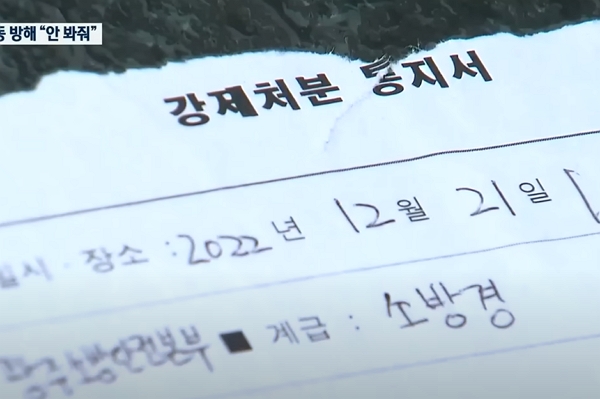 동 방해 “안 봐줘”
강제처분 통지서
일시 · 장소 : 2022년 12월 21일
광주소방안전본부 ■ 계급 : 소방경